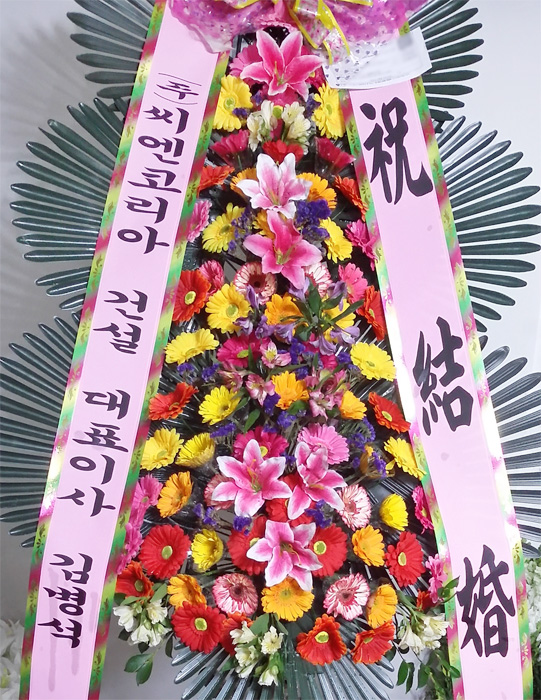 (주)씨엔코리아 건설 대표이사 김병석
祝 結 婚